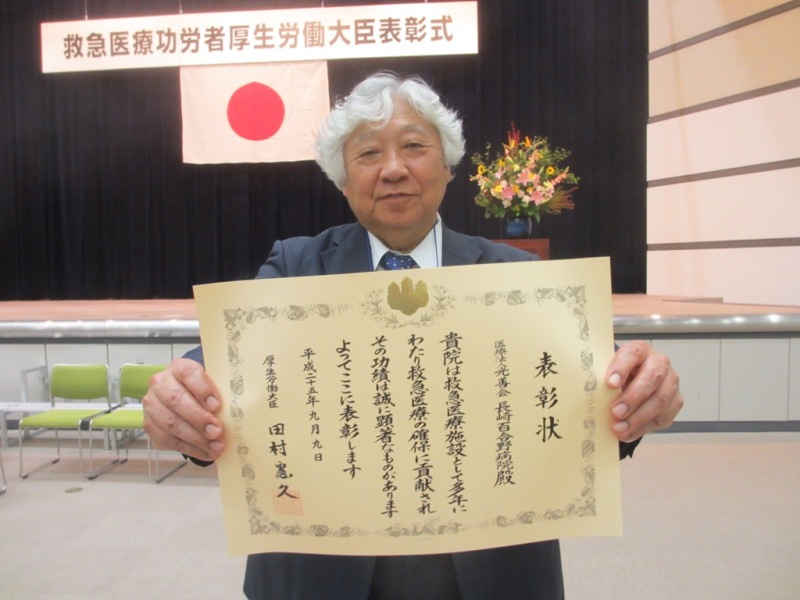 救急医療功労者厚生労働大臣表彰式
表彰状
医療法人光善会 長崎百合野病院殿
貴院は救急医療施設として多年に
わたり救急医療の確保に貢献され
その功績は誠に顕著なものがあります
よってここに表彰します
平成二十五年九月九日
厚生労働大臣 田村憲久